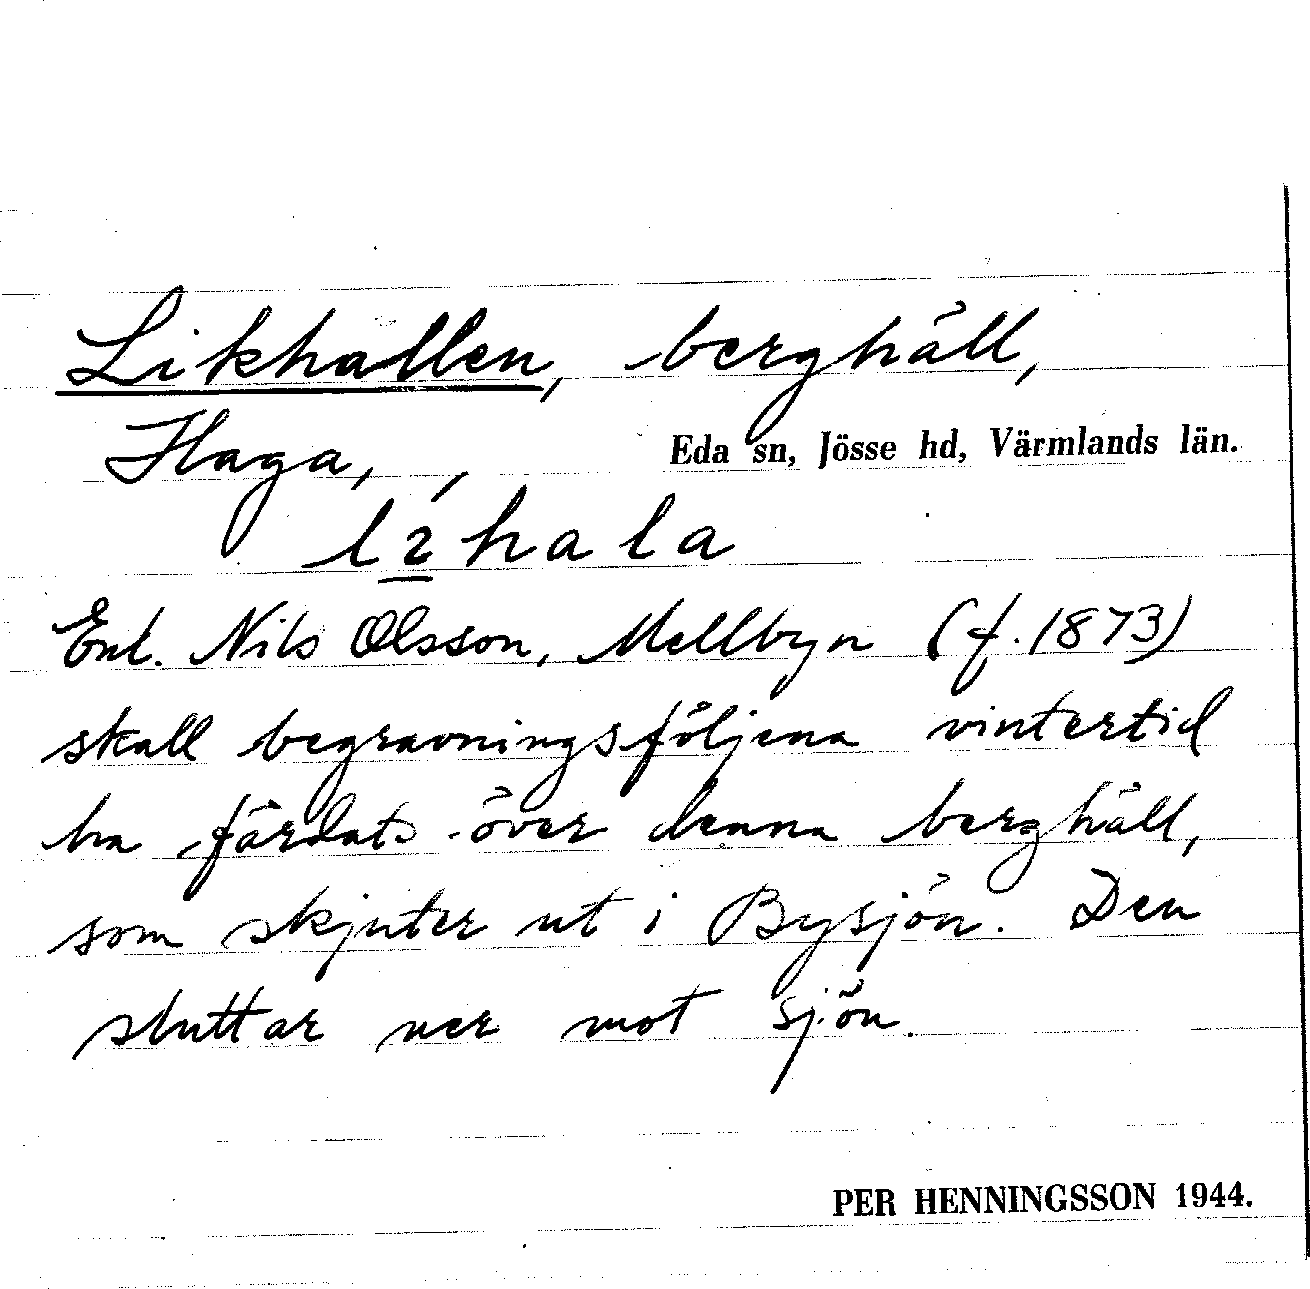 Likhallen, berghäll,
Haga, Eda sn, Jösse hd, Värmlands län.
lí̱hala
Enl. Nils Olsson, Mellbyn (f. 1873)
skall begravningsföljena vintertid
ha färdats över denna berghäll,
som skjuter ut i Bysjön. Den
sluttar ner mot sjön.
PER HENNINGSSON 1944.